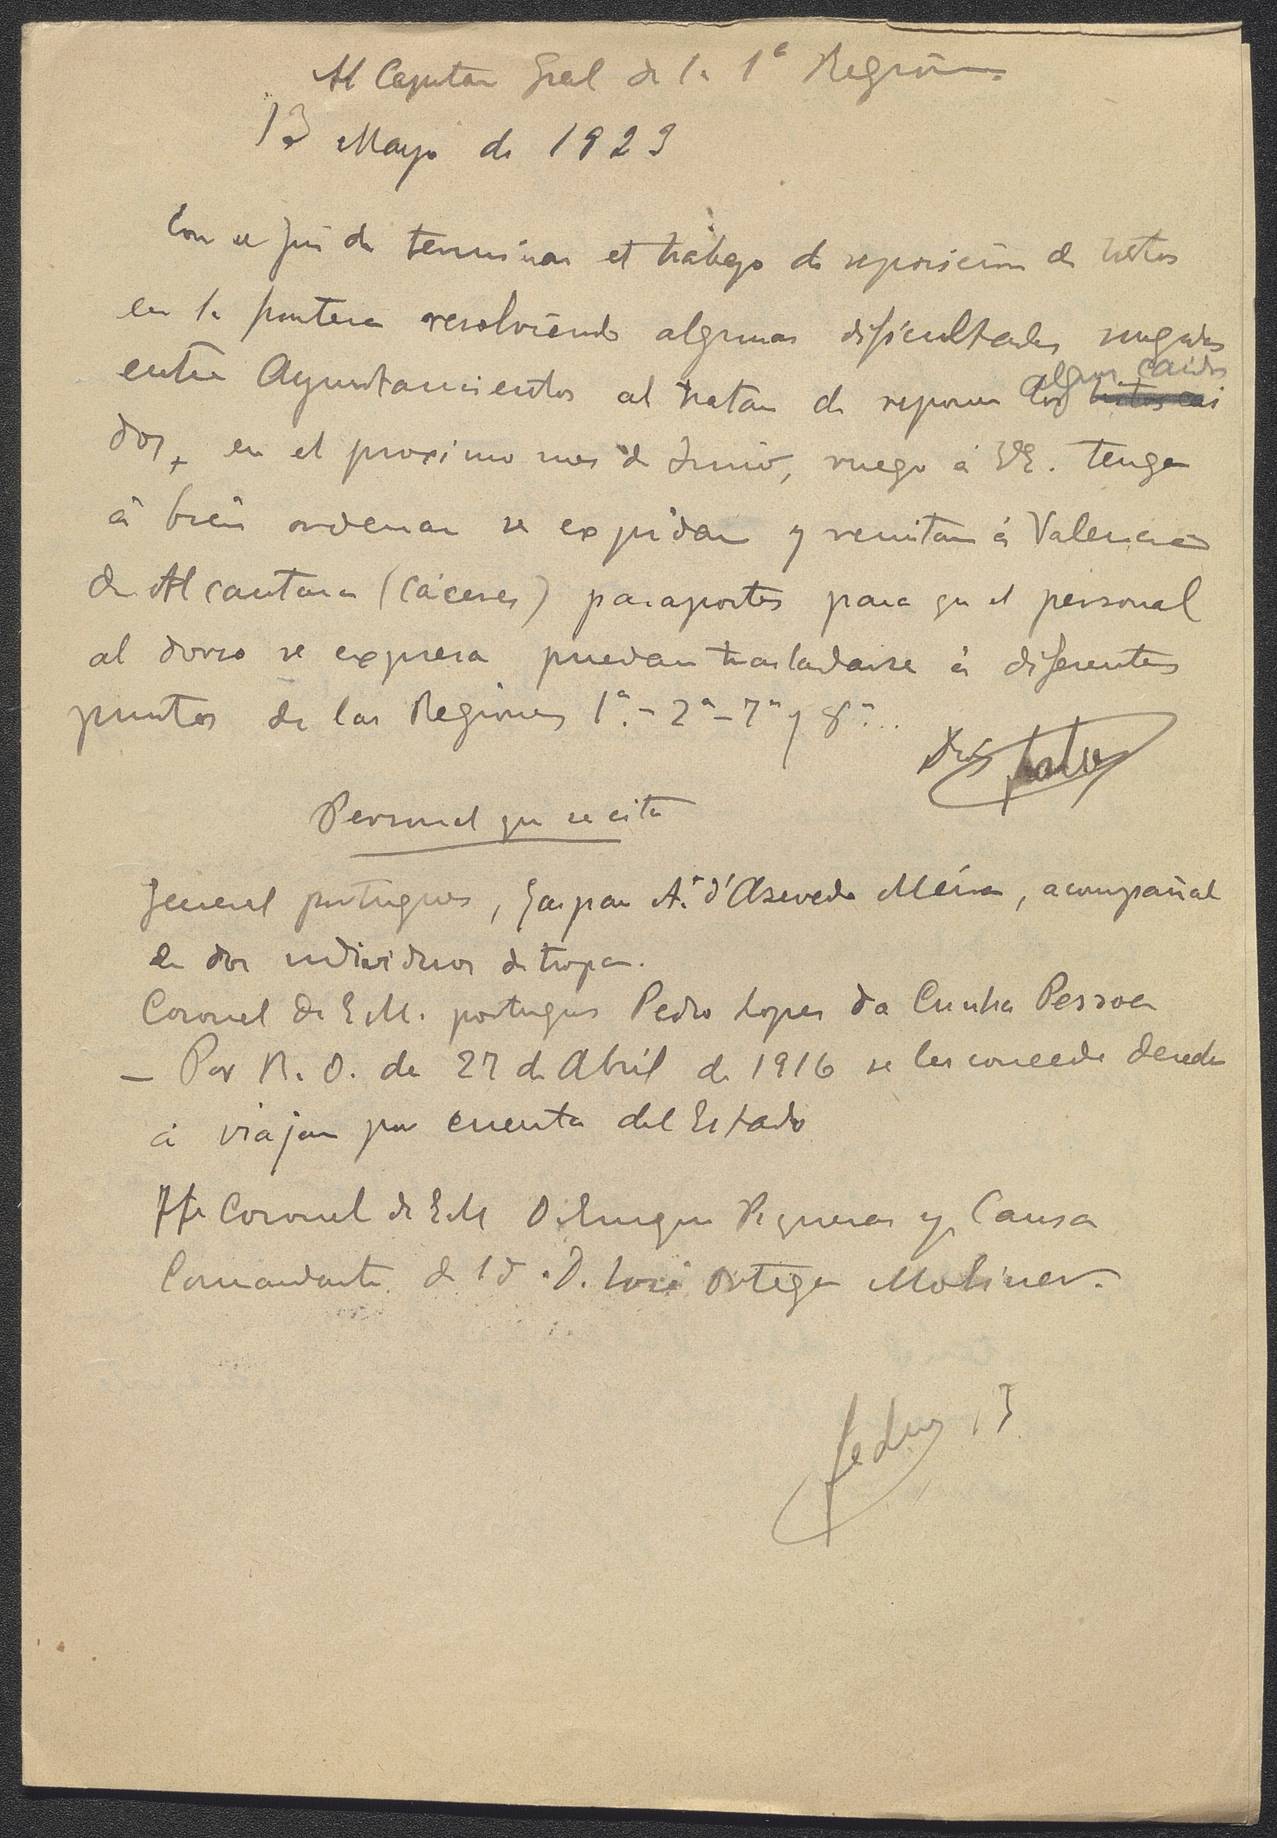 Al Capitan Gral de la 1ª Región
13 Mayo de 1923
Con el fin de terminar el trabajo de reposicion de hitos
en la frontera resolviendo algunas dificultades surgidas
entre Ayuntamientos al tratar de reponer algunos caidos los hitos cai
dos, en el proximo mes de Junio, ruego á VE. tenga
á bien ordenar se expidan y remitan á Valencia
de Alcantara (Cáceres) pasaportes para qe el personal
al dorso se expresa puedan trasladarse á diferentes
puntos de las Regiones 1ª.- 2ª- 7ª y 8ª.
Dios
Personal que se cita
General portugues, Gaspar A.º d'Azevedo Meira, acompañado
de dos individuos de tropa.
Coronel de E.M. portugues Pedro Lopes da Cunha Pessoa
- Por R. O. de 27 de Abril de 1916 se les concede derecho
á viajar por cuenta del Estado
Tte Coronel de E.M D. Enrique Piqueras y Causa
Comandante de id. D. José Ortega Moliner.
13